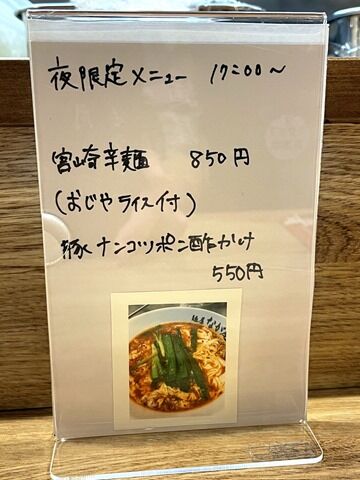 夜限定メニュー 17:00〜
宮崎辛麺 850円
(おじやライス付)
豚ナンコツポン酢かけ
550円